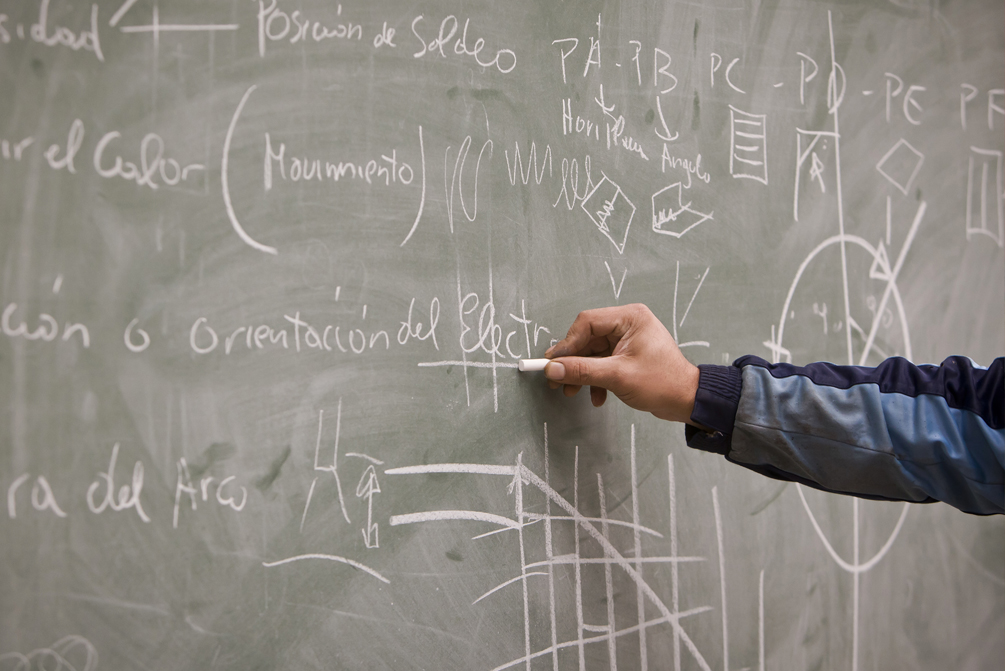 sidad Posición de Soldeo
PA - PB PC - PD - PE PF
Horiz Plana Angulo
ir el Calor (Movimiento)
ción o orientación del Electr
ra del Arco